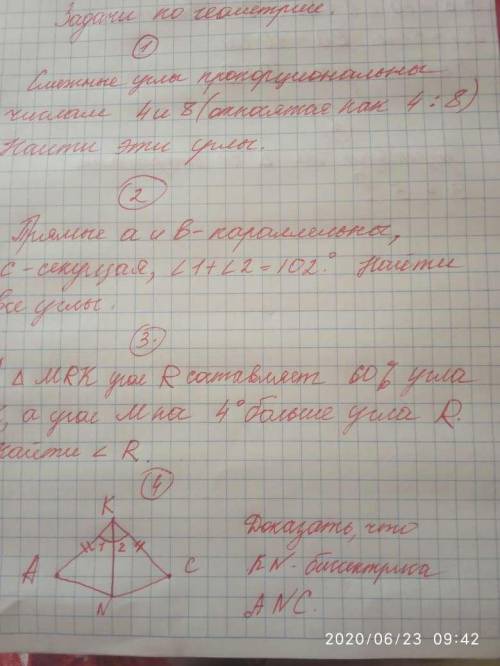 Задачи по геометрии.
1
Смежные углы пропорциональны
числам 4 и 8 (относятся как 4:8)
Найти эти углы.
2
Прямые а и в - параллельны,
с - секущая, ∠1+∠2=102° Найти
все углы.
3.
Δ MRK угол R составляет 60% угла
, а угол M на 4° больше угла R.
Найти ∠ R.
4
K
1 2
A
C
N
Доказать, что
KN - биссектриса
ANC.
2020/06/23 09:42